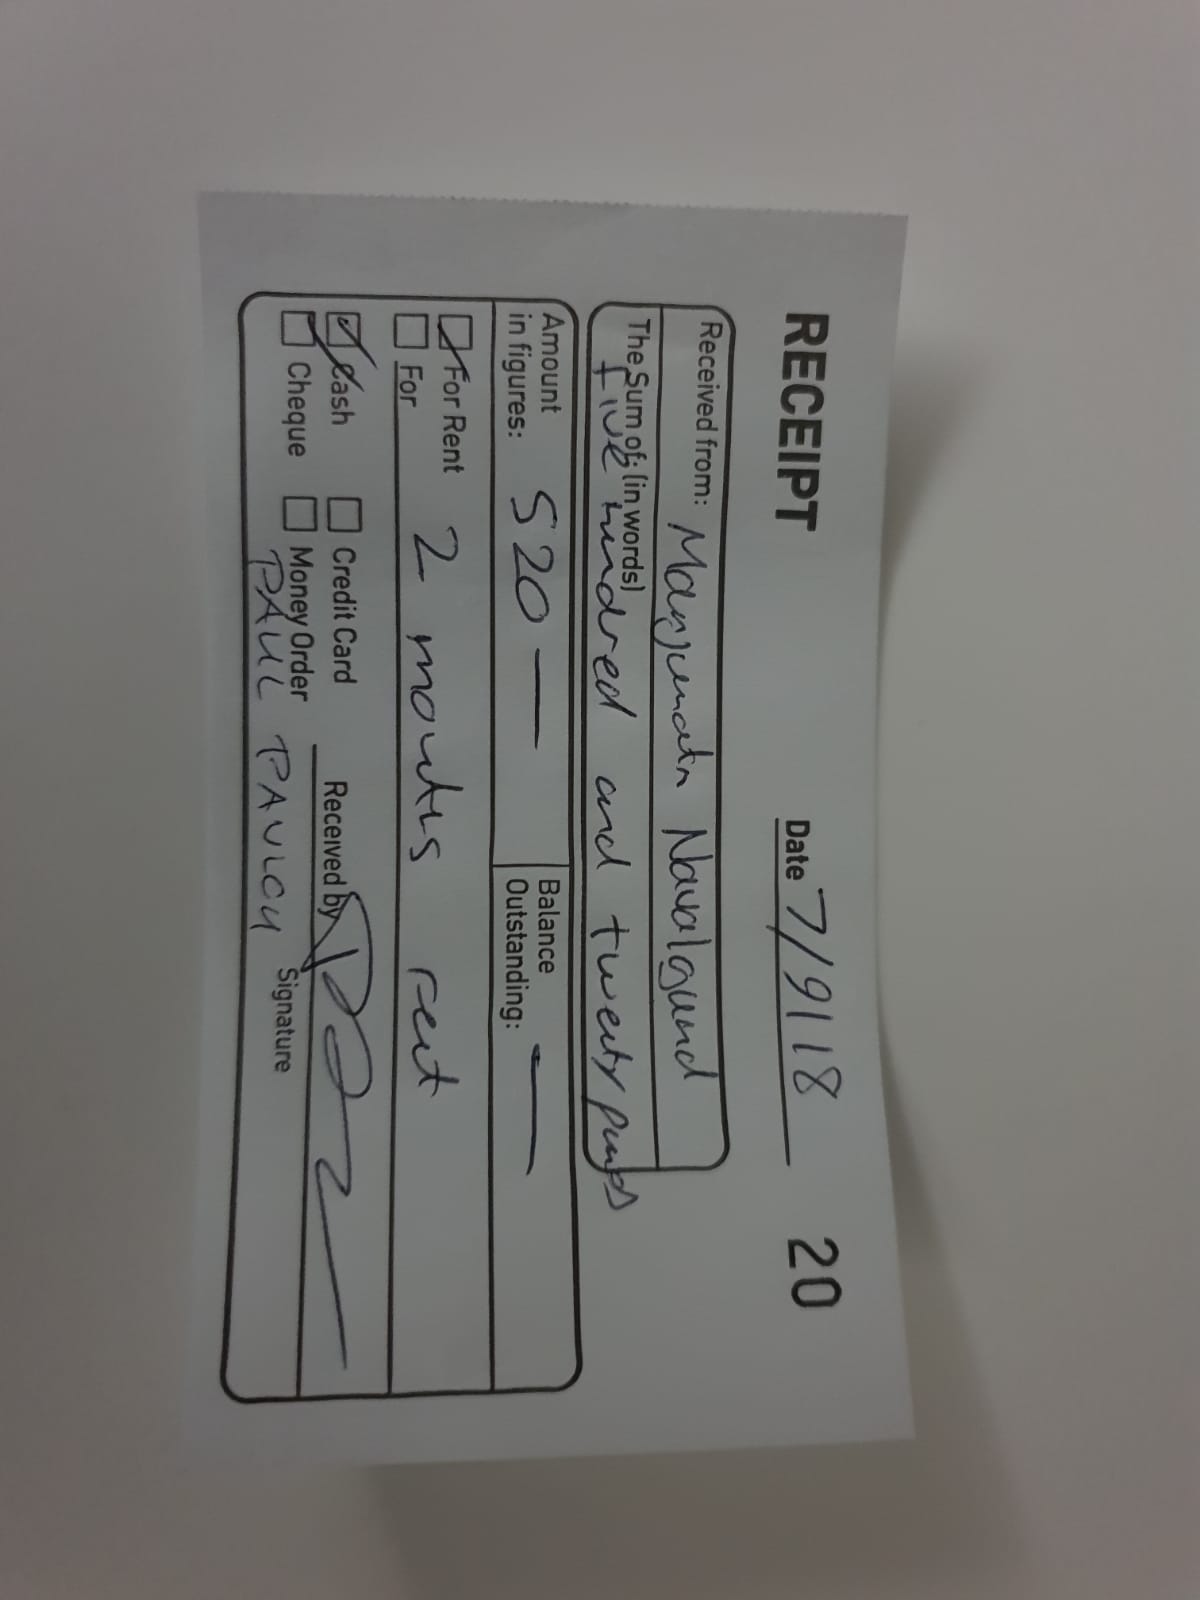 RECEIPT Date 7/9/18 20
Received from: Manjunath Navalgund
The Sum of: (in words)
five hundred and twenty punds
Amount in figures: 520 —
Balance Outstanding: —
For Rent
For 2 months rent
Cash Credit Card
Cheque Money Order
Received by
PAUL PAULCY Signature